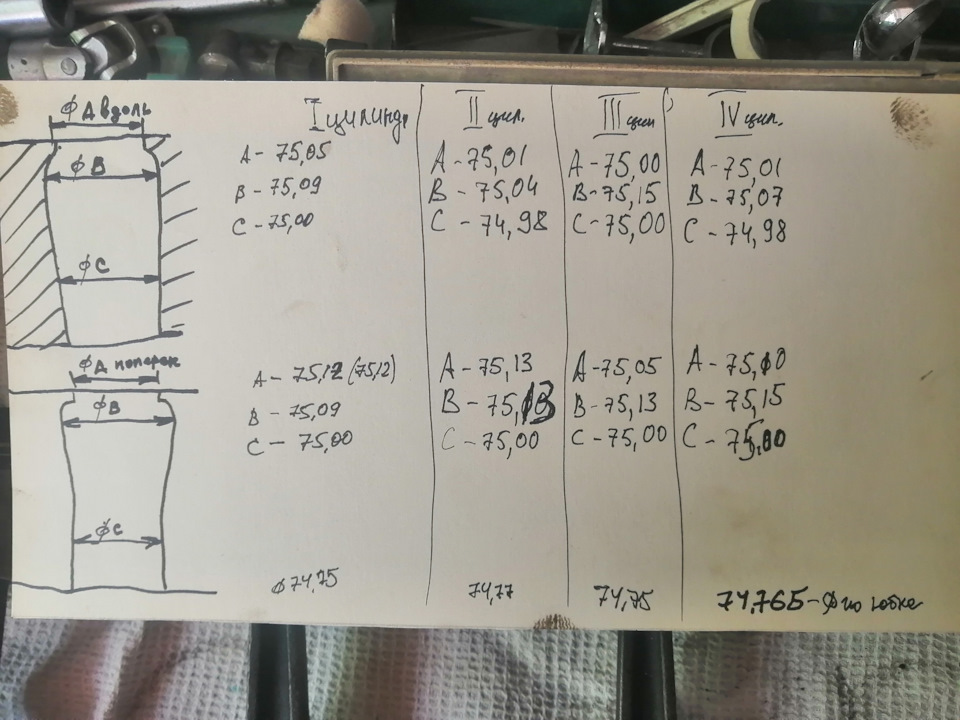 ⌀A вдоль
⌀B
⌀C
I цилиндр
A - 75,05
B - 75,09
C - 75,00
II цил.
A - 75,01
B - 75,04
C - 74,98
III цил
A - 75,00
B - 75,15
C - 75,00
IV цил.
A - 75,01
B - 75,07
C - 74,98
⌀A поперек
⌀B
⌀C
A - 75,12 (75,12)
B - 75,09
C - 75,00
A - 75,13
B - 75,13
C - 75,00
A - 75,05
B - 75,13
C - 75,00
A - 75,10
B - 75,15
C - 75,00
⌀74,75
74,77
74,75
74,765 - ⌀ по юбке